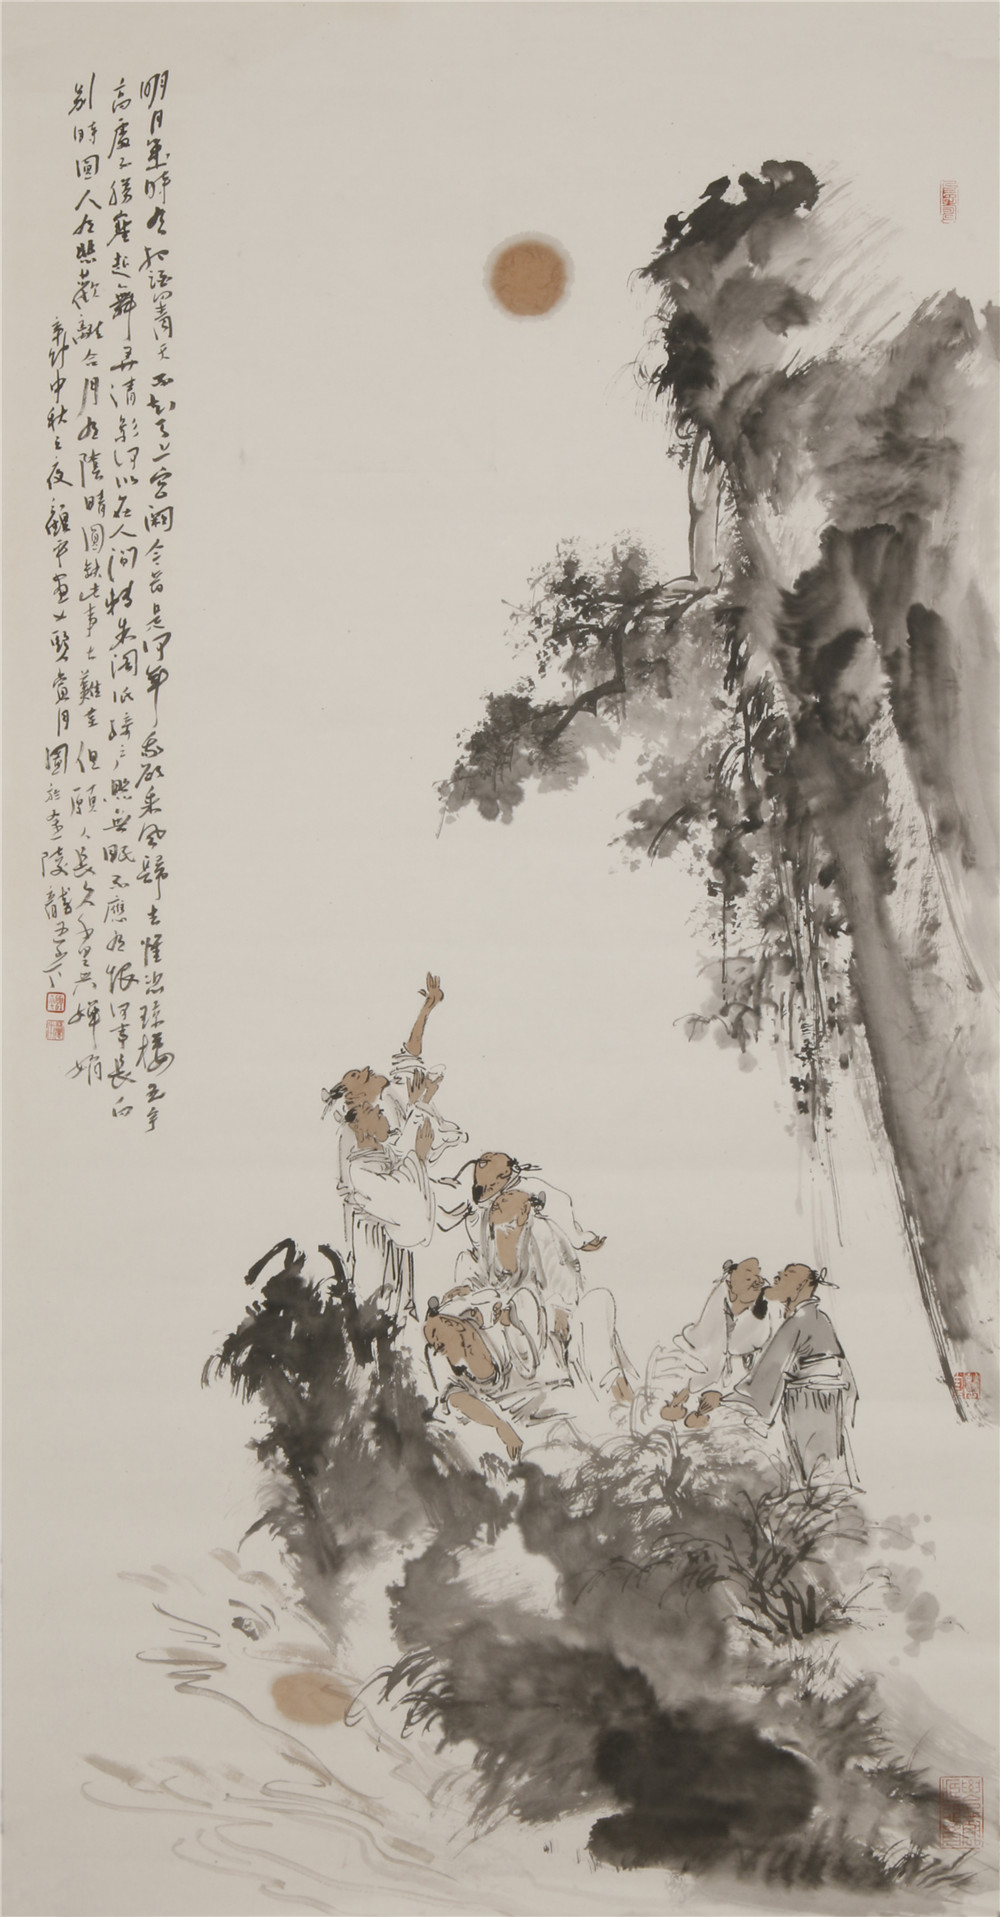 明月幾時有把酒問青天不知天上宮闕今昔是何年我欲乘風歸去惟恐瓊樓玉宇
高處不勝寒起舞弄清影何似在人間轉朱閣低綺戶照無眠不應有恨何事長向
別時圓人有悲歡離合月有陰晴圓缺此事古難全但願人長久千里共嬋娟
辛卯中秋之夜
賞月圖於金陵